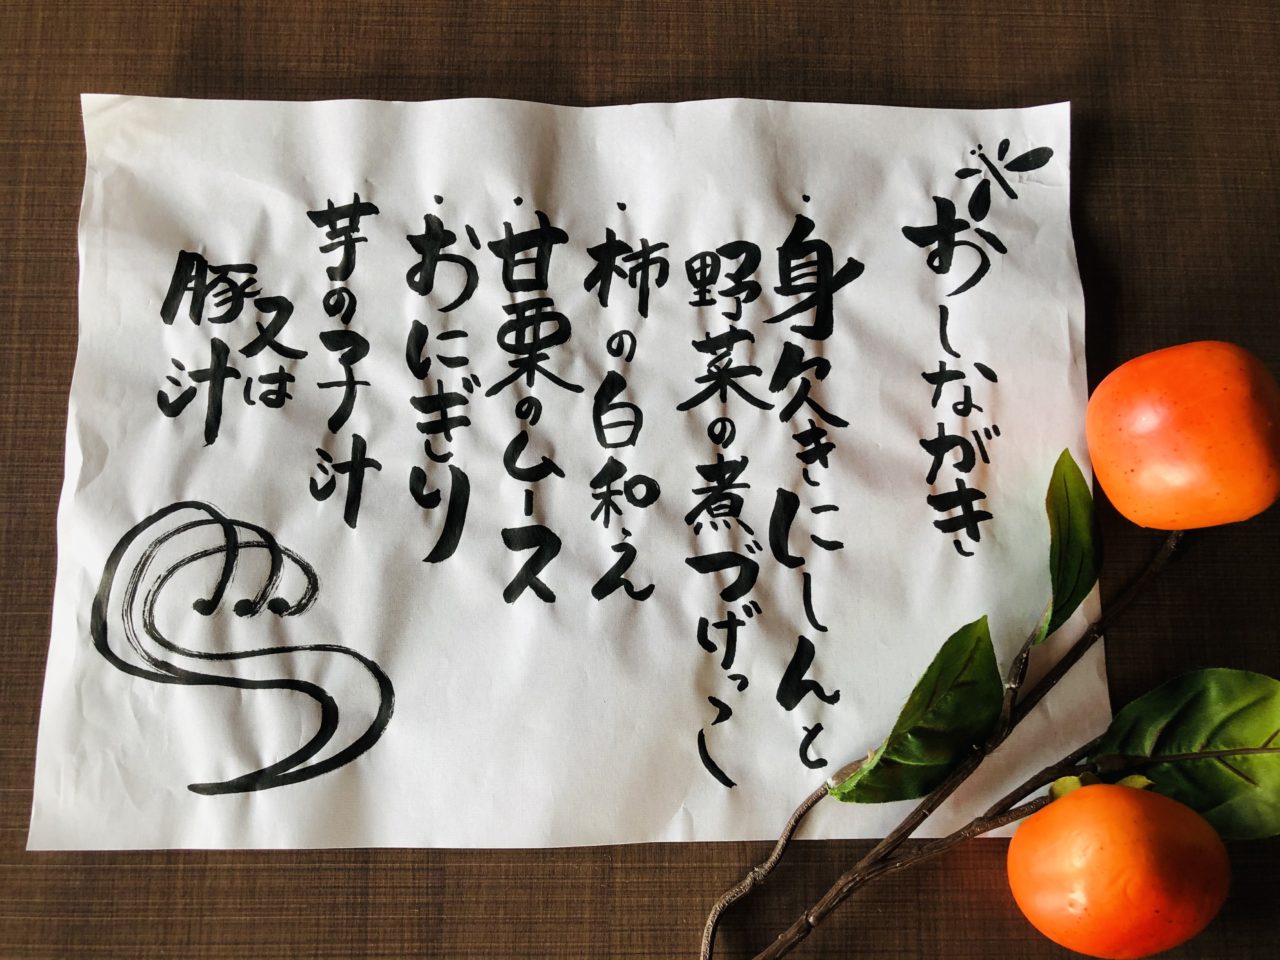 おしながき
・身欠きにしんと
野菜の煮づげっこ
・柿の白和え
・甘栗のムース
・おにぎり
芋の子汁
又は
豚汁